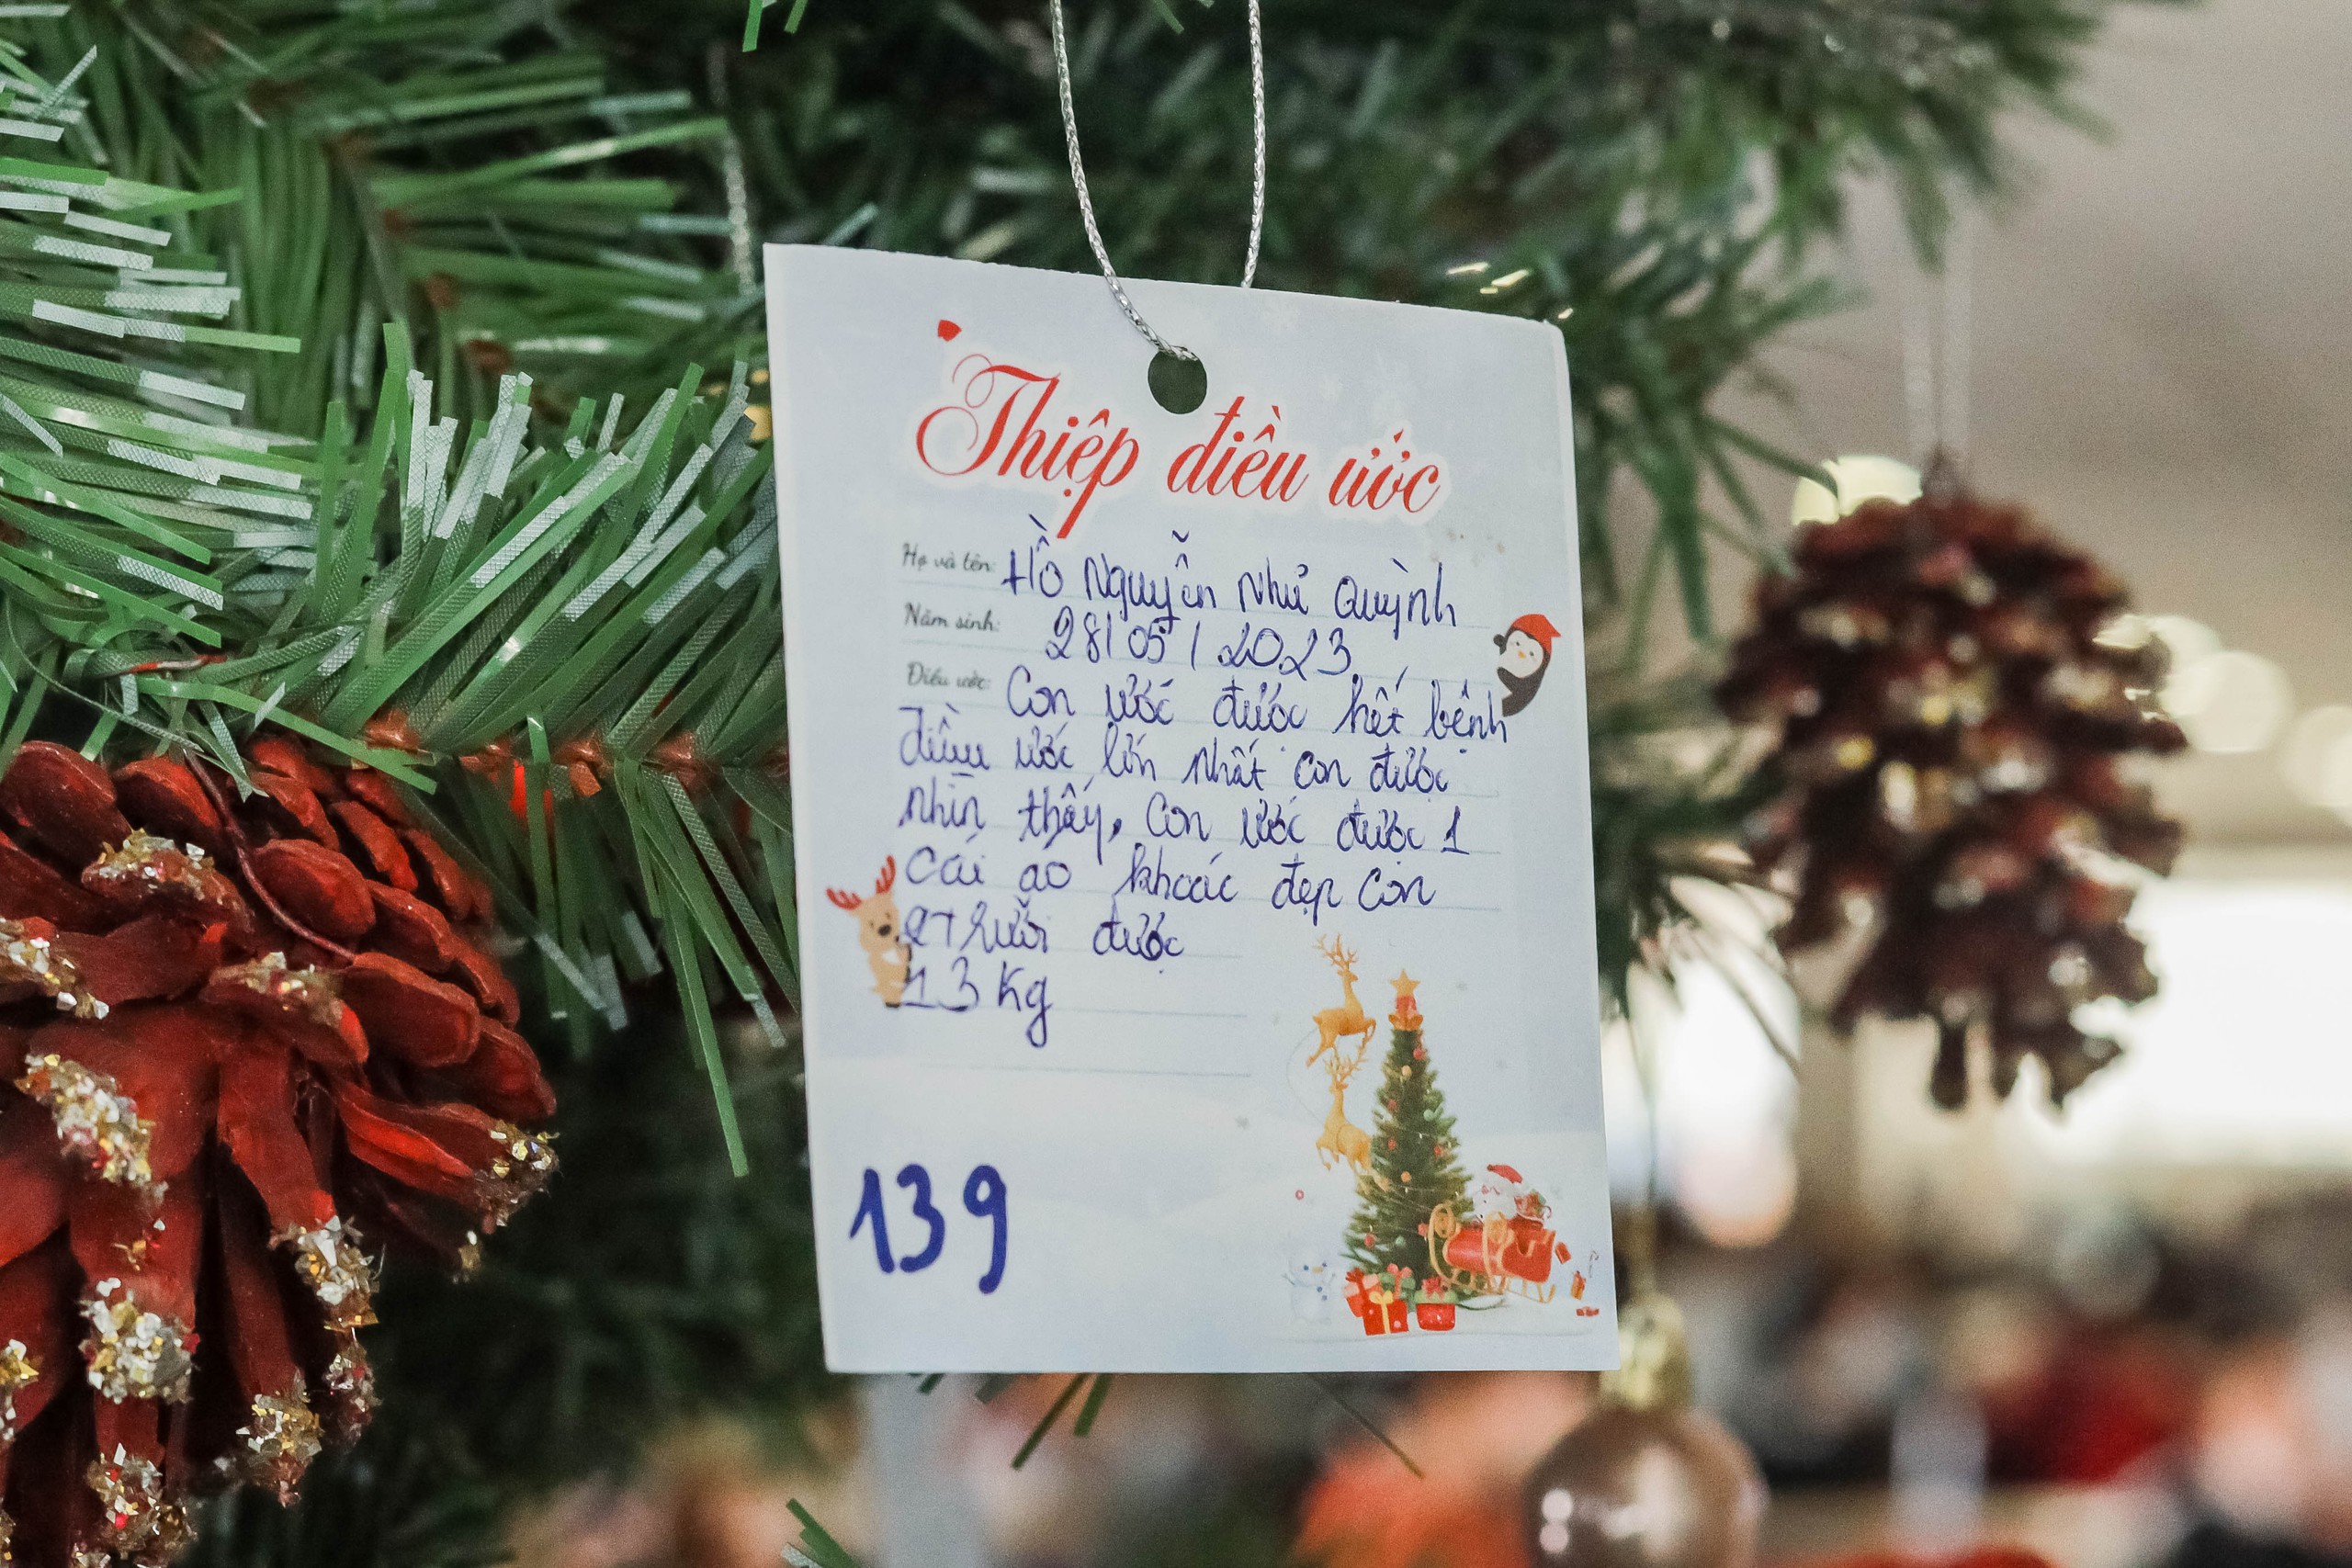 Thiệp điều ước
Họ và tên: Hồ Nguyễn Như Quỳnh
Năm sinh: 28/05/2023
Điều ước: Con ước được hết bệnh
điều ước lớn nhất con được
nhìn thấy, Con ước được 1
cái áo khoác đẹp Con
2T rưỡi được
13 Kg
139